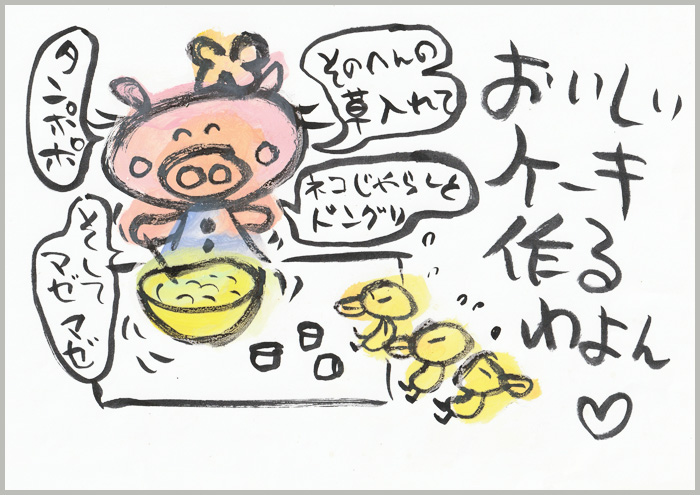 おいしい
ケーキ
作る
わよん
そのへんの
草入れて
タンポポ
ネコじゃらしと
ドングリ
そして
マゼマゼ